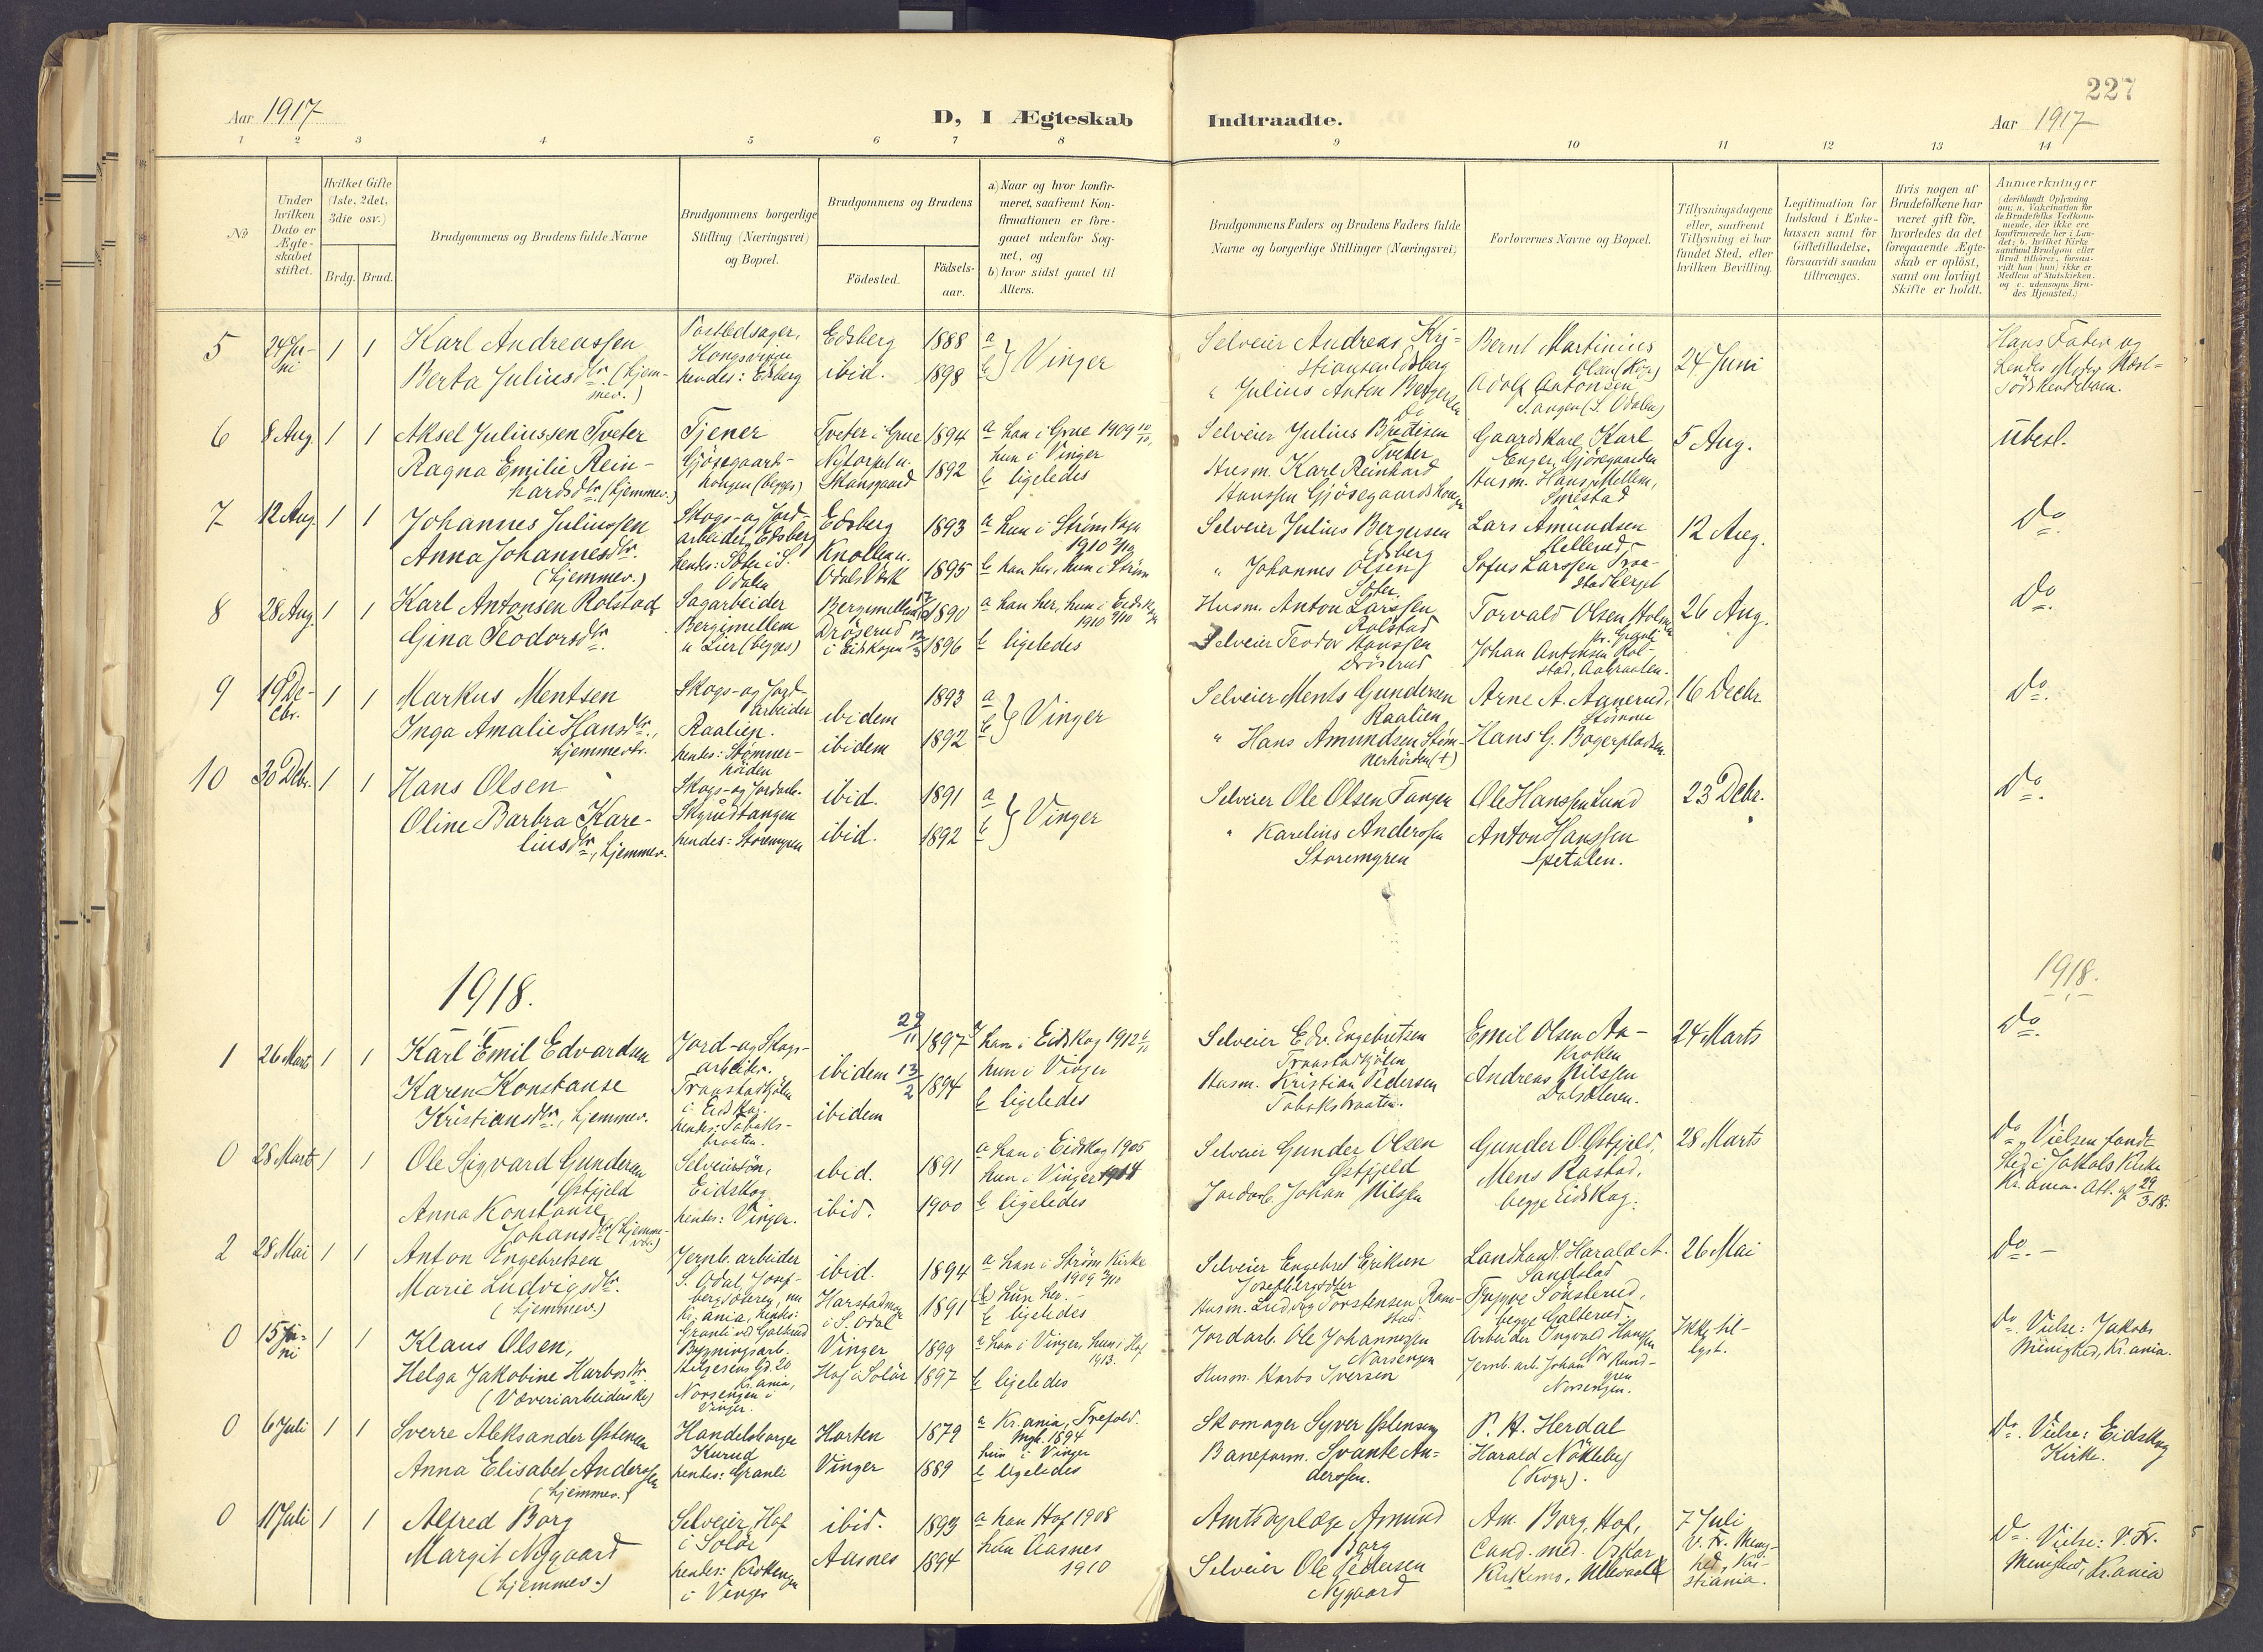 227
Aar 1917
D, I Ægteskab Indtraadte.
Aar 1917
1 2 3 4 5 6 7 8 9 10 11 12 13 14
№
Under hvilken Dato er Ægte-
skabet stiftet.
Hvilket Gifte
(1ste, 2det,
3die osv.)
Brdg. Brud.
Brudgommens og Brudens fulde Navne
Brudgommens borgerlige
Stilling (Næringsvei)
og Bopæl.
Brudgommens og Brudens
Födested.
Födsels-
aar.
a) Naar og hvor konfir-
meret, saafremt Kon-
firmationen er fore-
gaaet udenfor Sog-
net, og
b) hvor sidst gaaet til
Alters.
Brudgommens Faders og Brudens Faders fulde
Navne og borgerlige Stillinger (Næringsvei)
Forlovernes Navne og Bopæl.
Tillysningsdagene
eller, saafremt
Tillysning ei har
fundet Sted, efter
hvilken Bevilling.
Legitimation for
Indskud i Enke-
kassen samt for
Giftetilladelse,
forsaavidt saadan
tiltrænges.
Hvis nogen af
Brudefolkene har
været gift för,
hvorledes da det
foregaaende Ægte-
skab er oplöst,
samt om lovligt
Skifte er holdt.
Anmærkninger
(deriblandt Oplysning
om: a. Vakcination for
de Brudefolks Vedkom-
mende, der ikke ere
konfirmerede her i Lan-
det; b. hvilket Kirke-
samfund Brudgom eller
Brud tilhörer, forsaa-
vidt han (hun) ikke er
Medlem af Statskirken,
og c. udensogns Bru-
des Hjemsted.)
5
24 Ju-
ni
1 1
Karl Andreassen
Berta Juliusdtr. (hjem-
mev.)
Kongsvinger
hendes: Edsberg
Edsberg
ibid.
1888
1898
a
b} Vinger
Selveier Andreas Kri-
stiansen Edsberg
" Julius Anton Bergersen
do
Bernt Martinius
Olsen (Kgv)
Adolf Antonsen
Tangen (S. Odalen)
24 Juni
Hans Fader og
hendes Moder
Södskendebarn.
6
8 Aug.
1 1
Aksel Juliussen Tveter
Ragna Emilie Rein-
hardsdtr. (hjemmev.)
Tjener
Gjösegaards-
haugen (begges)
Tveter i Grue
Nytorpet u.
Skansgaard
1894
1892
a han i Grue 1909 10/10,
hun i Vinger
b ligeledes
Selveier Julius Bredesen
Tveter
Husm. Karl Reinhard
Hanssen Gjösegaardshaugen
Gaardskarl Karl
Enger, Gjösegaarden
Husm. Hans Mellem,
Sørestad
5 Aug.
ubesl.
7
12 Aug.
1 1
Johannes Juliussen
Anna Johannesdtr.
(hjemmev.)
Skogs- og Jord-
arbeider, Edsberg
hendes: Sæter i S.
Odalen
Edsberg
Knollen u.
Odals Værk
1893
1895
a hun i Ström
1910 2/10
b han her, hun i Ström
Selveier Julius Bergersen
Edsberg
" Johannes Olsen
Sæter
Lars Amundsen
Mellerud
Sofus Larssen Traa-
stadberget
12 Aug.
do.
8
28 Aug.
1 1
Karl Antonsen Rolstad
Gina Teodorsdtr.
Sagarbeider
Bergimellem
u Lier (begges)
Bergimellem
Dröserud
i Eidskogen
1890
1896
a han her, hun i Eidskog
1910 2/10
b ligeledes
Husm. Anton Larssen
Rolstad
Selveier Teodor Hanssen
Dröserud
Torvald Olsen Holmen
pr. Granli
Johan Antonsen Rol-
stad, Aabraaten.
26 Aug.
do.
9
19 De-
cbr.
1 1
Markus Mentsen
Inga Amalie Hansdtr.,
hjemmev.
Skogs- og Jord-
arbeider
Raalien.
hendes: Stömner-
höiden
ibidem
ibidem
1893
1892
a
b} Vinger
Selveier Ments Gundersen
Raalien
" Hans Amundsen Stöm-
nerhöiden (+)
Arne A. Aanerud,
Stömner
Hans G. Bogerpladsen
16 Decbr.
do.
10
30 Dcbr.
1 1
Hans Olsen
Oline Barbra Kare-
liusdtr., hjemmev.
Skogs- og Jordarb.
hendes: Storemyren
ibid.
ibid.
1891
1892
a
b} Vinger
Selveier Ole Olsen Tangen
" Karelius Anderssen
Storemyren
Ole Hanssen Lund
Anton Hanssen
Spetalen.
23 Dcbr.
do.
1918.
1918.
1
26 Marts
1 1
Karl Emil Edvardsen
Karen Konstanse
Kristiansdtr., hjemmev.
Jord- og Skogs-
arbeider.
Traastadkjölen
i Eidskog.
hendes: Tobaks-
braaten.
ibidem
ibidem
29/11 1897
13/2 1894
a han i Eidskog 1912
hun i Vinger
b ligeledes
Selveier Edv. Engebretsen
Traastadkjölen
Husm. Kristian Pedersen
Tobaksbraaten.
Emil Olsen Aa-
kroken
Andreas Nilssen
Dalskleren.
24 Marts
do.
0
28 Marts
1 1
Ole Sigvard Gundersen
Østgjeld
Anna Konstanse
Johansdtr. (hjemme-
vær.)
Selveiersön,
Eidskog
hendes: Vinger.
ibid.
ibid.
1891
1900
a han i Eidskog 1905
hun i Vinger 1914
b ligeledes
Selveier Gunder Olsen
Østgjeld
Jordarb. Johan Nilssen
Gunder O. Østgjeld,
Mens Rastad,
begge Eidskog.
28 Marts
do. Vielsen fandt
Sted i Jakobs Kirke
Kr.ania. Att. af 29/3 18.
2
28 Mai
1 1
Anton Engebretsen
Marie Ludvigsdtr.
(hjemmev.)
Jernb. arbeider
S. Odal, Josef-
bergsæteren, nu
Kr.ania, hendes:
Granli ved Galterud
ibid.
Harstadmoen
i S. Odal
1894
1891
a han i Ström Kirke
1909 3/10
hun her.
b ligeledes
Selveier Engebret Eriksen
Josefbergsæter
Husm. Ludvig Torstensen Ram-
stad
Landhandl. Harald A.
Sandstad
Trygve Sönsterud,
begge Galterud.
26 Mai
do. -
0
15 Ju-
ni
1 1
Klaus Olsen,
Helga Jakobine Harbosdtr.
(Væveriarbeiderske)
Bygningsarb.
Helgesens Gd. 20
Kr.ania,
Norsengen i
Vinger.
Vinger
Hof i Solör
1899
1897
a han i Vinger, hun i Hof
1913.
b ligeledes
Jordarb. Ole Johannessen
Norsengen
Husm. Harbo Iversen
Arbeider Ingvald Hanssen
Jernb. arb. Johan
Norsengen.
Ikke til-
lyst.
do. Vielse: Jakobs
Menighed, Kr.ania.
0
6 Juli
1 1
Sverre Aleksander Østensen
Anna Elisabet Anderssen
(hjemmev.)
Handelsborger
Kurud
hendes: Granli
Horten
Vinger
1879
1889
a Kr.ania, Trefold.
Mgh. 1894
hun i Vinger
b ligeledes
Skomager Syver Østensen
Baneform. Svante An-
derssen.
P. H. Herdal
Harald Nökleby
(Kvgr).
do. Vielse: Eidskog
Kirke.
0
11 Juli
1 1
Alfred Borg
Margit Nygaard
(hjemmev.)
Selveier, Hof
i Solör
hendes:
i Vinger
ibid.
Aasnes
1893
1894
a han Hof 1908
hun Aasnes
1910
Amtsdyrlæge Amund
Borg
Selveier Ole Pedersen
Nygaard
Am. Borg, Hof,
Cand. med. Oskar
Kirkemo, Ullevaal
7 Juli
V. Fr. Menig-
hed, Kri-
stiania.
do. Vielse: V. Fr.
Menighed, Kr.ania